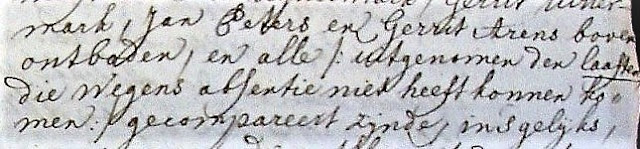 mark, Jan Peters en Gerrit Arens boven
ontbaden, en alle /: uitgenomen den laasten
die wegens absentie niet heeft konnen ko=
men :/ gecompareert zijnde, insgelijks,